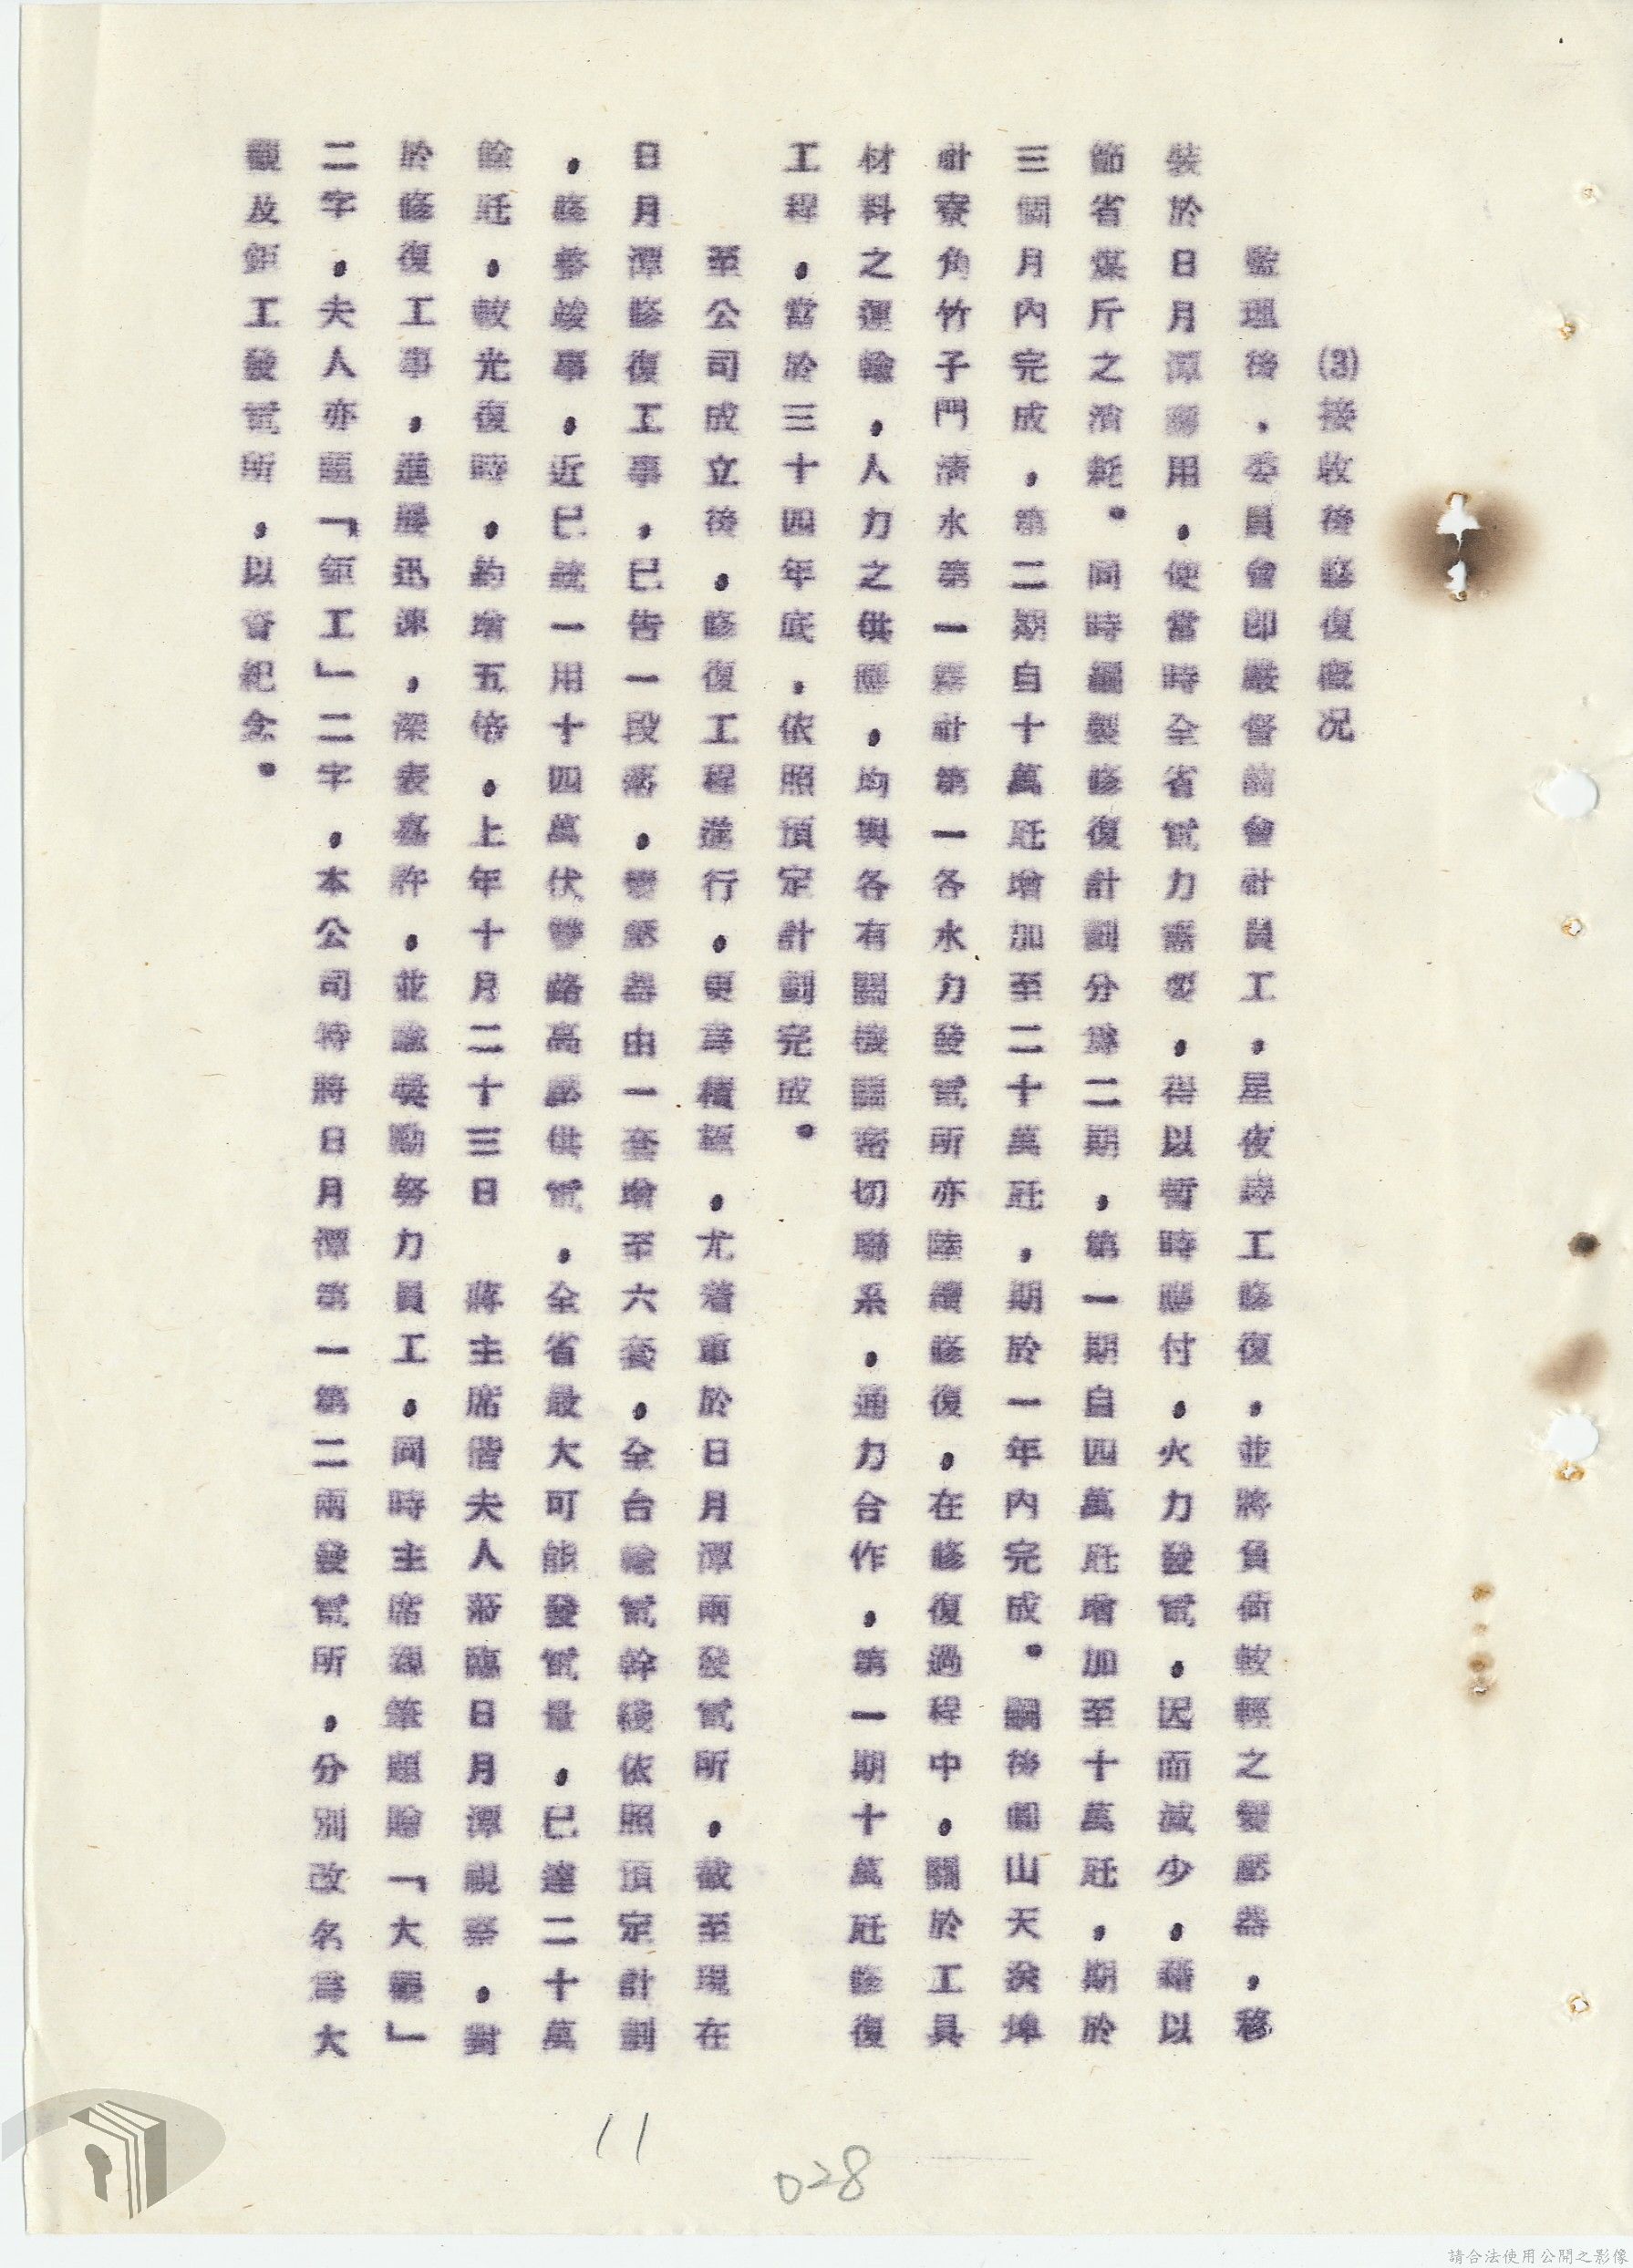 (3)接收後修復概況
監理後，委員會即嚴督前會社員工，星夜趕工修復，並將負荷較輕之變壓器，移
裝於日月潭應用，使當時全省電力需要，得以暫時應付，火力發電，因而減少，藉以
節省煤斤之消耗。同時編製修復計劃分爲二期，第一期自四萬瓩增加至十萬瓩，期於
三個月內完成，第二期自十萬瓩增加至二十萬瓩，期於一年內完成。嗣後圓山天送埤
社寮角竹子門濁水第一舊社第一各水力發電所亦陸續修復，在修復過程中，關於工具
材料之運輸，人力之供應，均與各有關機關密切聯系，通力合作，第一期十萬瓩修復
工程，當於三十四年底，依照預定計劃完成。
至公司成立後，修復工程進行，更爲積極，尤着重於日月潭兩發電所，截至現在
日月潭修復工事，已告一段落，變壓器由一套增至六套，全台輸電幹綫依照預定計劃
，修藝竣事，近已統一用十四萬伏雙路高壓供電，全省最大可能發電量，已達二十萬
餘瓩，較光復時，約增五倍，上年十月二十三日　蔣主席偕夫人蒞臨日月潭視察，對
於修復工事，進展迅速，深表嘉許，並勉獎勵努力員工，同時主席親筆題贈「大觀」
二字，夫人亦題「鉅工」二字，本公司特將日月潭第一第二兩發電所，分別改名爲大
觀及鉅工發電所，以誌紀念。
11
028
請合法使用公開之影像